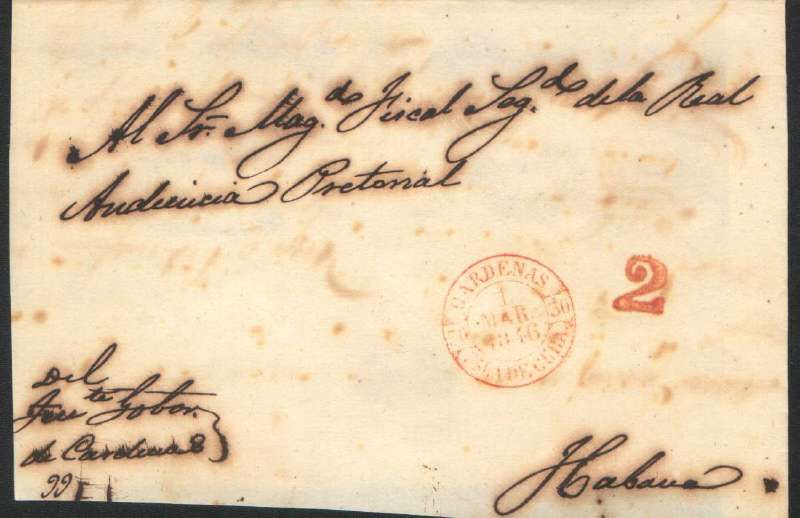 Al Sr. Mag.do Fiscal Seg.do de la Real
Audiencia Pretorial
CARDENAS
1
MAR.
1846
ISLA DE CUBA
2
Del
Ten.te Gobor.
de Cardenas
99
Habana